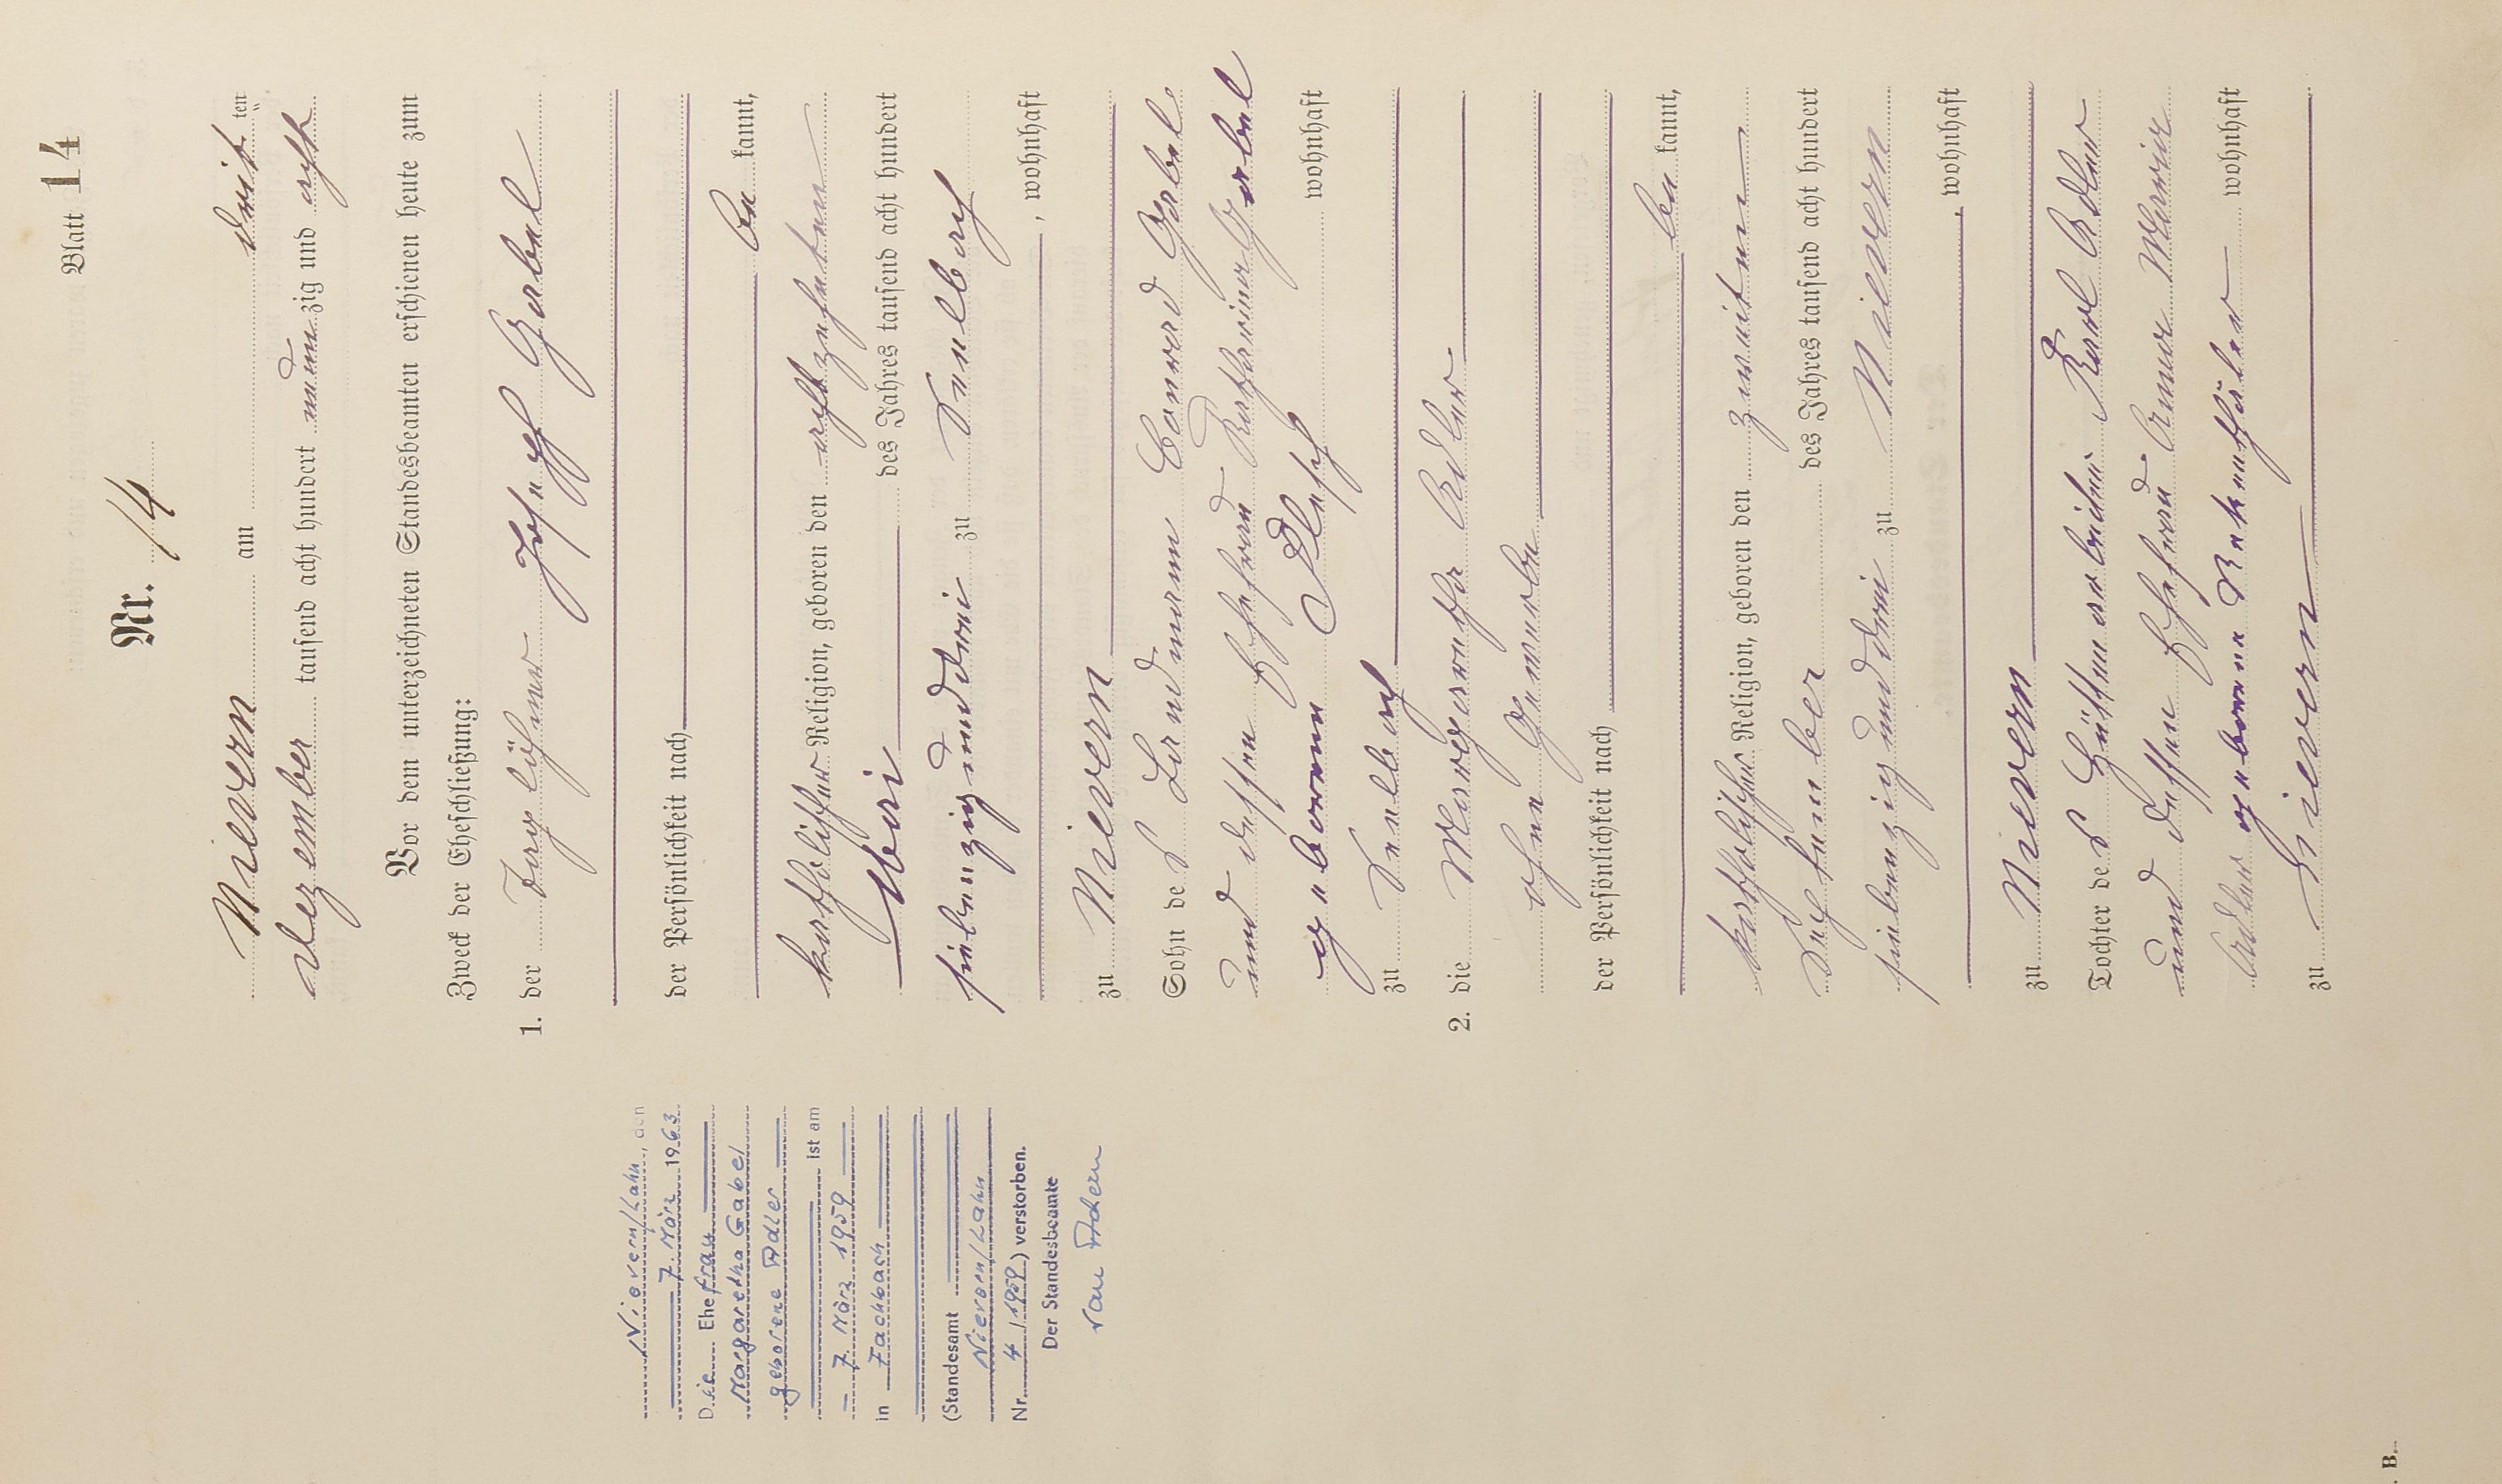 Blatt 14
Nr. 14
Nievern am drit ten
Dezember tausend acht hundert neun zig und acht
Vor dem unterzeichneten Standesbeamten erschienen heute zum
Zweck der Eheschließung:
1. der Taglöhner Joseph Gabel
der Persönlichkeit nach
be kannt,
katholischer Religion, geboren den achtzehnten
Mai des Jahres tausend acht hundert
siebenzig und drei zu Sulbach
, wohnhaft
zu Nievern
Sohn des Landmann Conrad Gabel
und dessen Ehefrau Katharina Gabel
geborenen wohnhaft
zu Sulbach
2. die Margaretha Adler
ohne Gewerbe
der Persönlichkeit nach
be kannt,
katholischer Religion, geboren den zweiten
September des Jahres tausend acht hundert
siebenzig und drei zu Nievern
, wohnhaft
zu Nievern
Tochter des Hüttenarbeiters Karl Adler
und dessen Ehefrau Anna Maria
Adler geborene wohnhaft
zu Nievern
Nievern/Lahn, den
7. März 1963
Die Ehefrau
Margaretha Gabel
geborene Adler
ist am
7. März 1959
in Fachbach
(Standesamt
Nievern/Lahn
Nr. 4/1959) verstorben.
Der Standesbeamte
B.